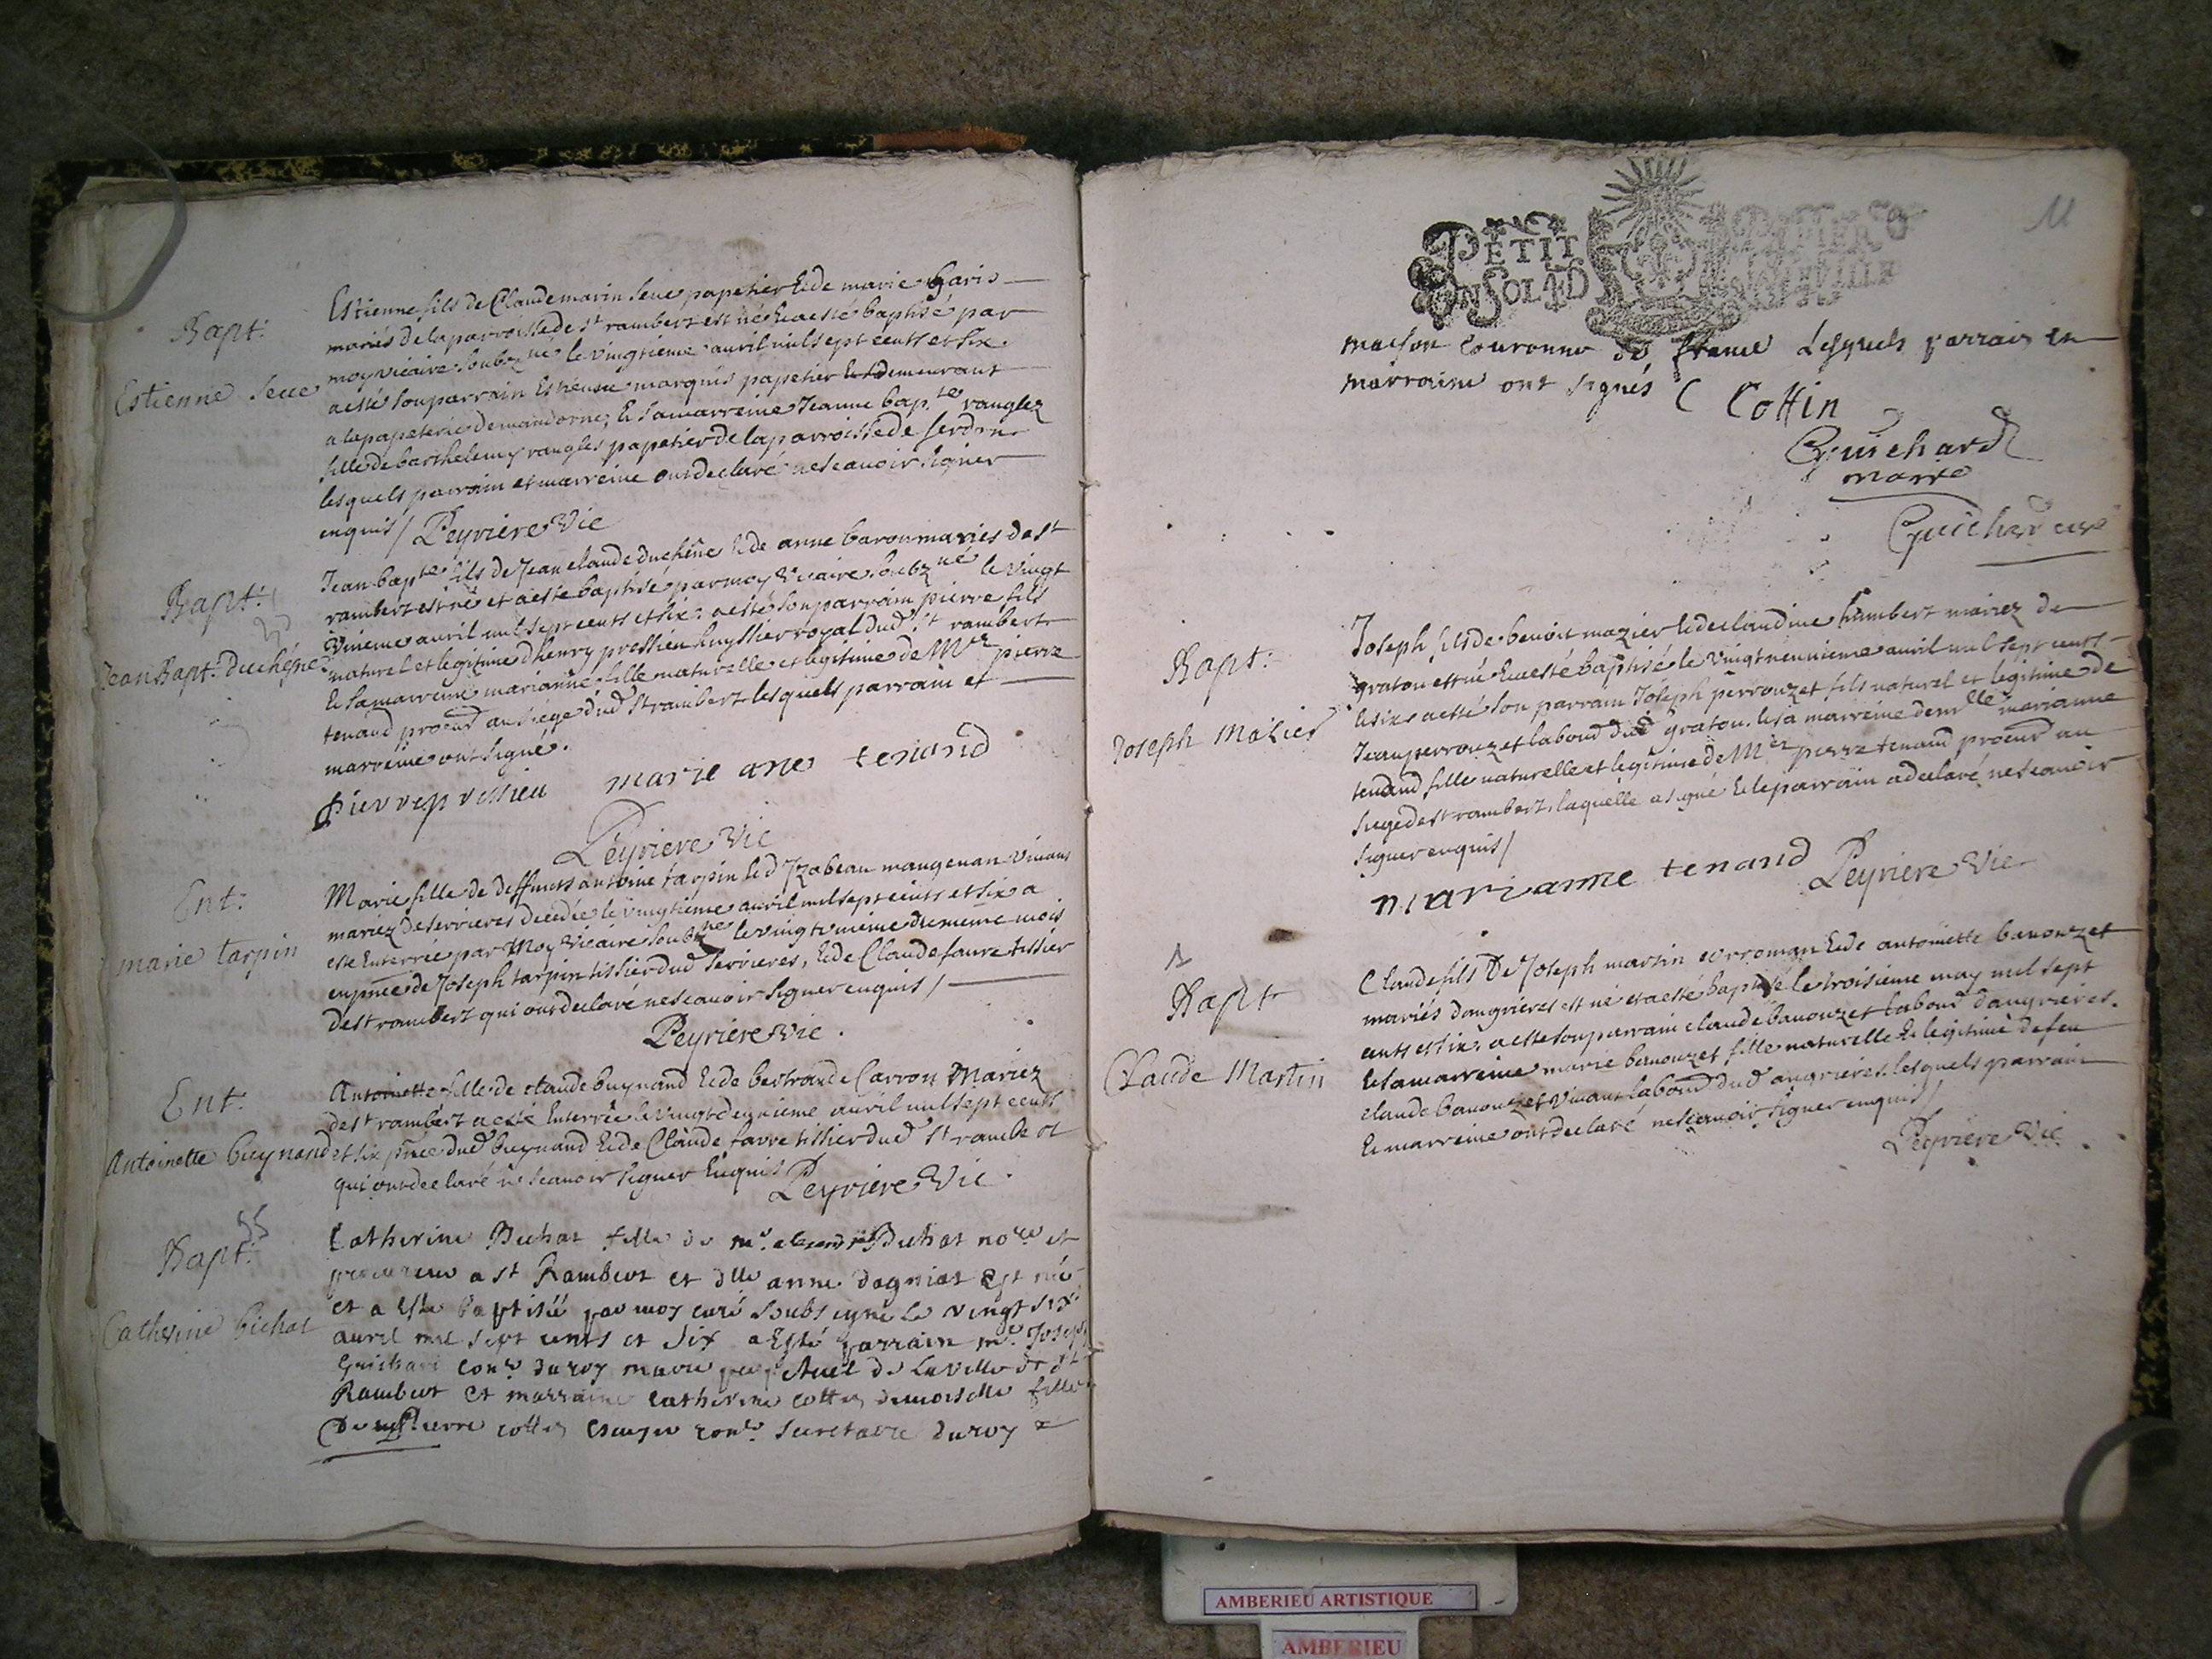 Bapt:
Estienne Seue
Estienne fils de Claude marin Seue papetier & de marie Garis
mariés de la parroisse de St rambert est né & a esté baptisé par
moy vicaire soubzné le vingtieme auril mil sept cents et six
a esté son parrain Estienne marquis papetier demeurant
a la papeterie de mandorne, & sa marreine Jeanne bapte vanglez
fille de barthelemy vangles papetier de la parroisse de serdon
lesquels parrain et marreine ont declaré ne scauoir signer
enquis / Peyriere Vic
Bapt:
Jean Bapt: duchêne
Jean bapte fils de Jean claude duchêne & de anne baron mariés de St
rambert est né et a esté baptisé par moy vicaire soubzné le vingt
unieme auril mil sept cents et six a esté son parrain pierre fils
naturel et legitime d'henry pressieu huyssier royal dud St rambert
& sa marreine marianne fille naturelle et legitime de Mre pierre
tenand procur au siege dud St rambert lesquels parrain et
marreine ont signé.
pierre pressieu marie ane tenand
Peyriere Vic
Ent:
marie tarpin
Marie fille de deffuncts antoine tarpin & d'Izabeau maugenan viuans
mariez de serrieres decedée le vingtieme auril mil sept cents et six a
esté Enterrée par Moy Vicaire soubzné le vingt unieme du meme mois
en pnce de Joseph tarpin tissier dud Serrieres, & de Claude faure tissier
de St rambert qui ont declaré ne scauoir signer enquis /
Peyriere Vic.
Ent:
Antoinette buynand
Antoinette fille de claude buynand & de bertrande Carron Mariez
de St rambert a esté Enterrée le vingt deuxieme auril mil sept cents
et six pnce dud buynand & de Claude favre tissier dud St rambert
qui ont declaré ne scauoir signer Enquis Peyriere Vic.
Bapt:
Catherine bichat
Catherine Bichat fille de mr. Bichat nore et
procureur a St Rambert et dlle anne dagniat Est née
et a Esté Baptisée par moy curé soubs signé le vingt six
auril mil sept cents et six a Esté parrain mr. Joseph
Guichard conr. du roy maire perpetuel de la ville de St
Rambert et marraine catherine cottin demoiselle fille
De mr pierre cottin Escuyer conr. secretaire du roy
11
PETIT
EN SOL 4 D
maison couronne de france Lesquels parrain en
marraine ont signés C Cottin
Guichard
maire
Guichard curé
Bapt:
Joseph Mazier
Joseph fils de benoit mazier & de claudine humbert mariez de
graton est né & a esté baptisé le vingt neuuieme auril mil sept cents
& six a esté son parrain Joseph perrouzet fils naturel et legitime de
Jean perrouzet labour dud graton, & sa marreine demlle marianne
tenand fille naturelle et legitime de Mre pierre tenand procur au
siege de St rambert, laquelle a signé & le parrain a declaré ne scauoir
signer enquis /
marianne tenand Peyriere Vic
Bapt
Claude Martin
Claude fils De Joseph martin & de antoinette banouzet
mariés d'angrieres est né et a esté baptisé le troisieme may mil sept
cents et six, a esté son parrain claude banouzet labour d'angrieres.
& sa marreine marie banouzet fille naturelle & legitime de feu
claude banouzet viuant labour dud angrieres, lesquels parrain
& marreine ont declaré ne scauoir signer enquis /
Peyriere Vic
AMBERIEU ARTISTIQUE
AMBERIEU